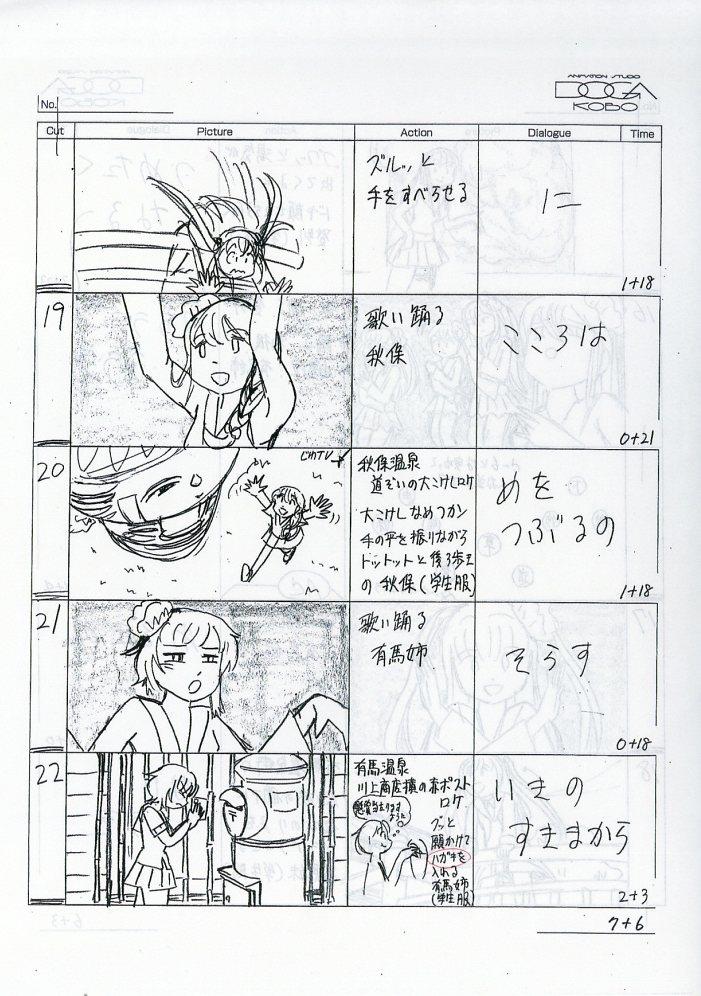 ANIMATION STUDIO
DOGA
KOBO
No.
Cut
Picture
Action
Dialogue
Time
ズルッと
手をすべらせる
1+18
19
歌い踊る
秋保
こころは
0+21
20
秋保温泉
道ぞいの大こけしロケ
大こけしなめつカン
手の平を振りながら
トットットと後ろ歩き
の秋保(学生服)
めを
つぶるの
1+18
21
歌い踊る
有馬姉
そらす
0+18
22
有馬温泉
川上商店横の赤ポスト
ロケ
グッと
願かけて
ハガキを
入れる
有馬姉
(学生服)
いきの
すきまから
2+3
7+6